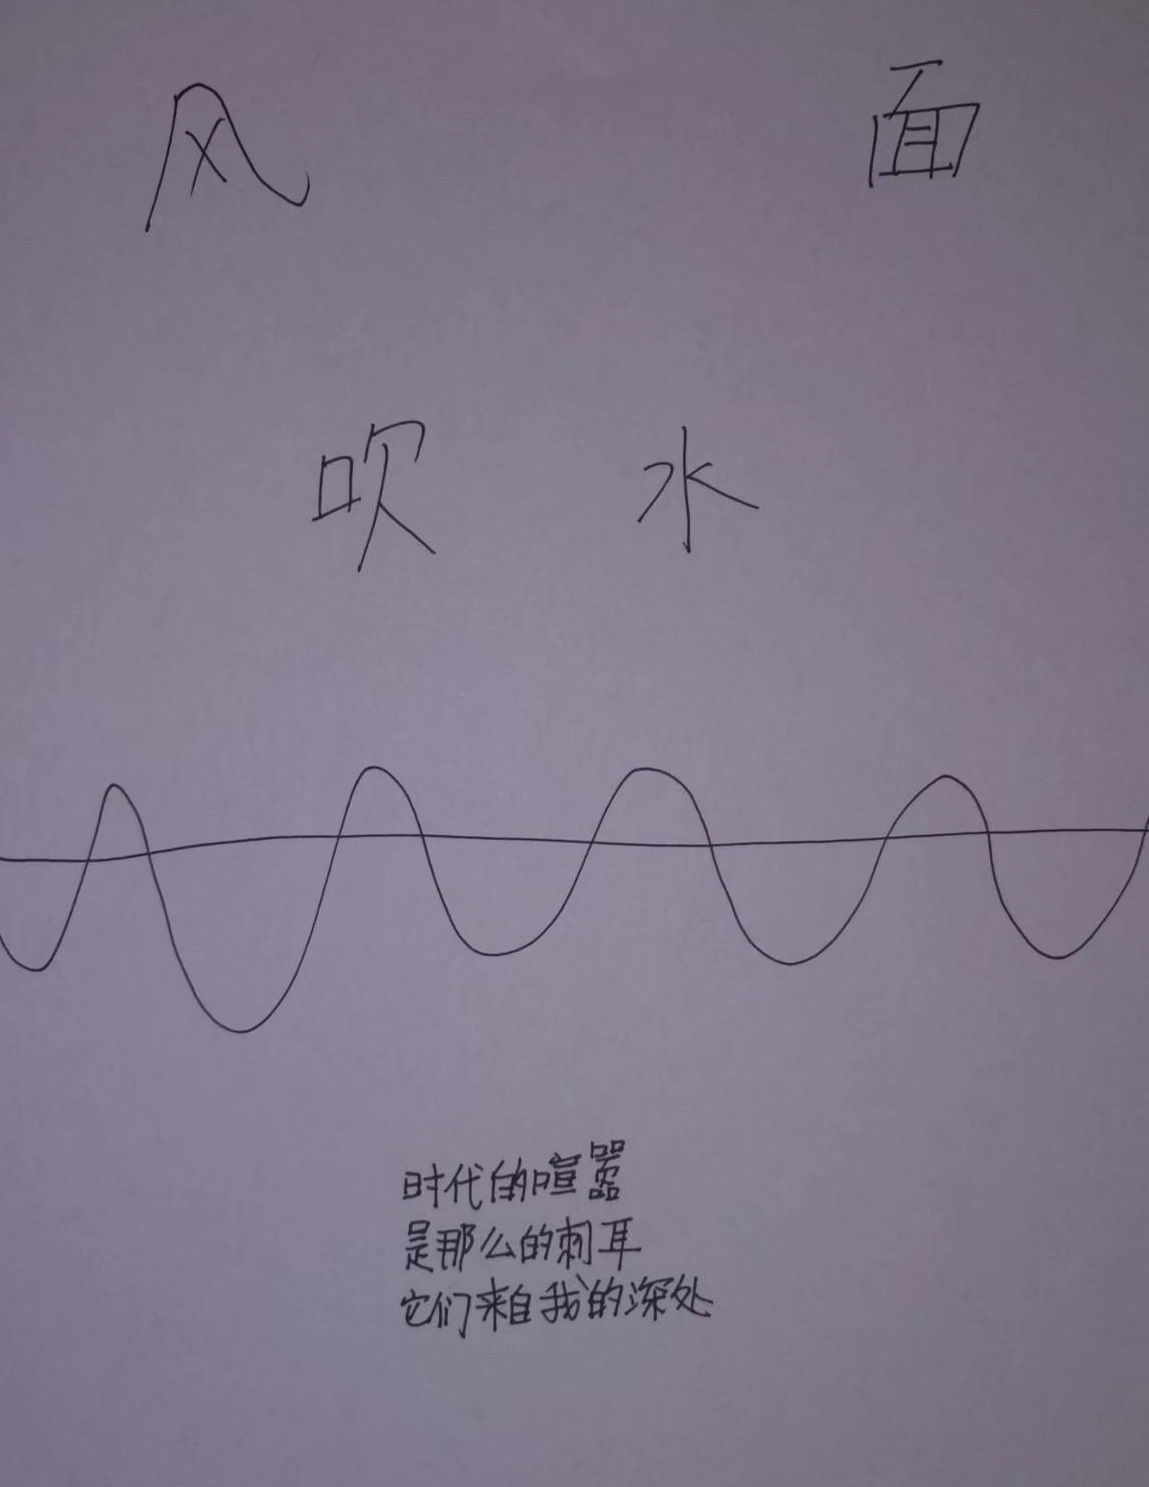 风 面
吹 水
时代的喧嚣
是那么的刺耳
它们来自我的深处